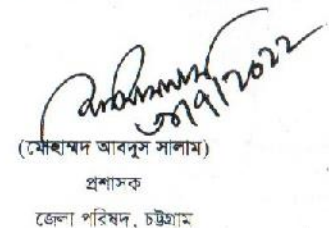 ৩০/৭/২০২২
(মোহাম্মদ আবদুস সালাম)
প্রশাসক
জেলা পরিষদ, চট্টগ্রাম